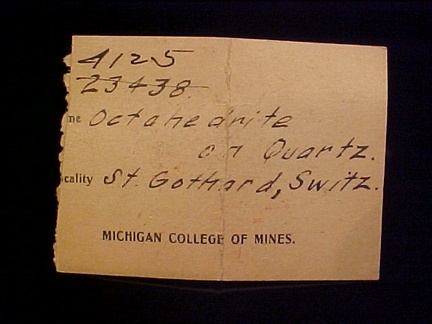 4125
23438
me Octahedrite
on Quartz.
cality St. Gothard, Switz.
MICHIGAN COLLEGE OF MINES.